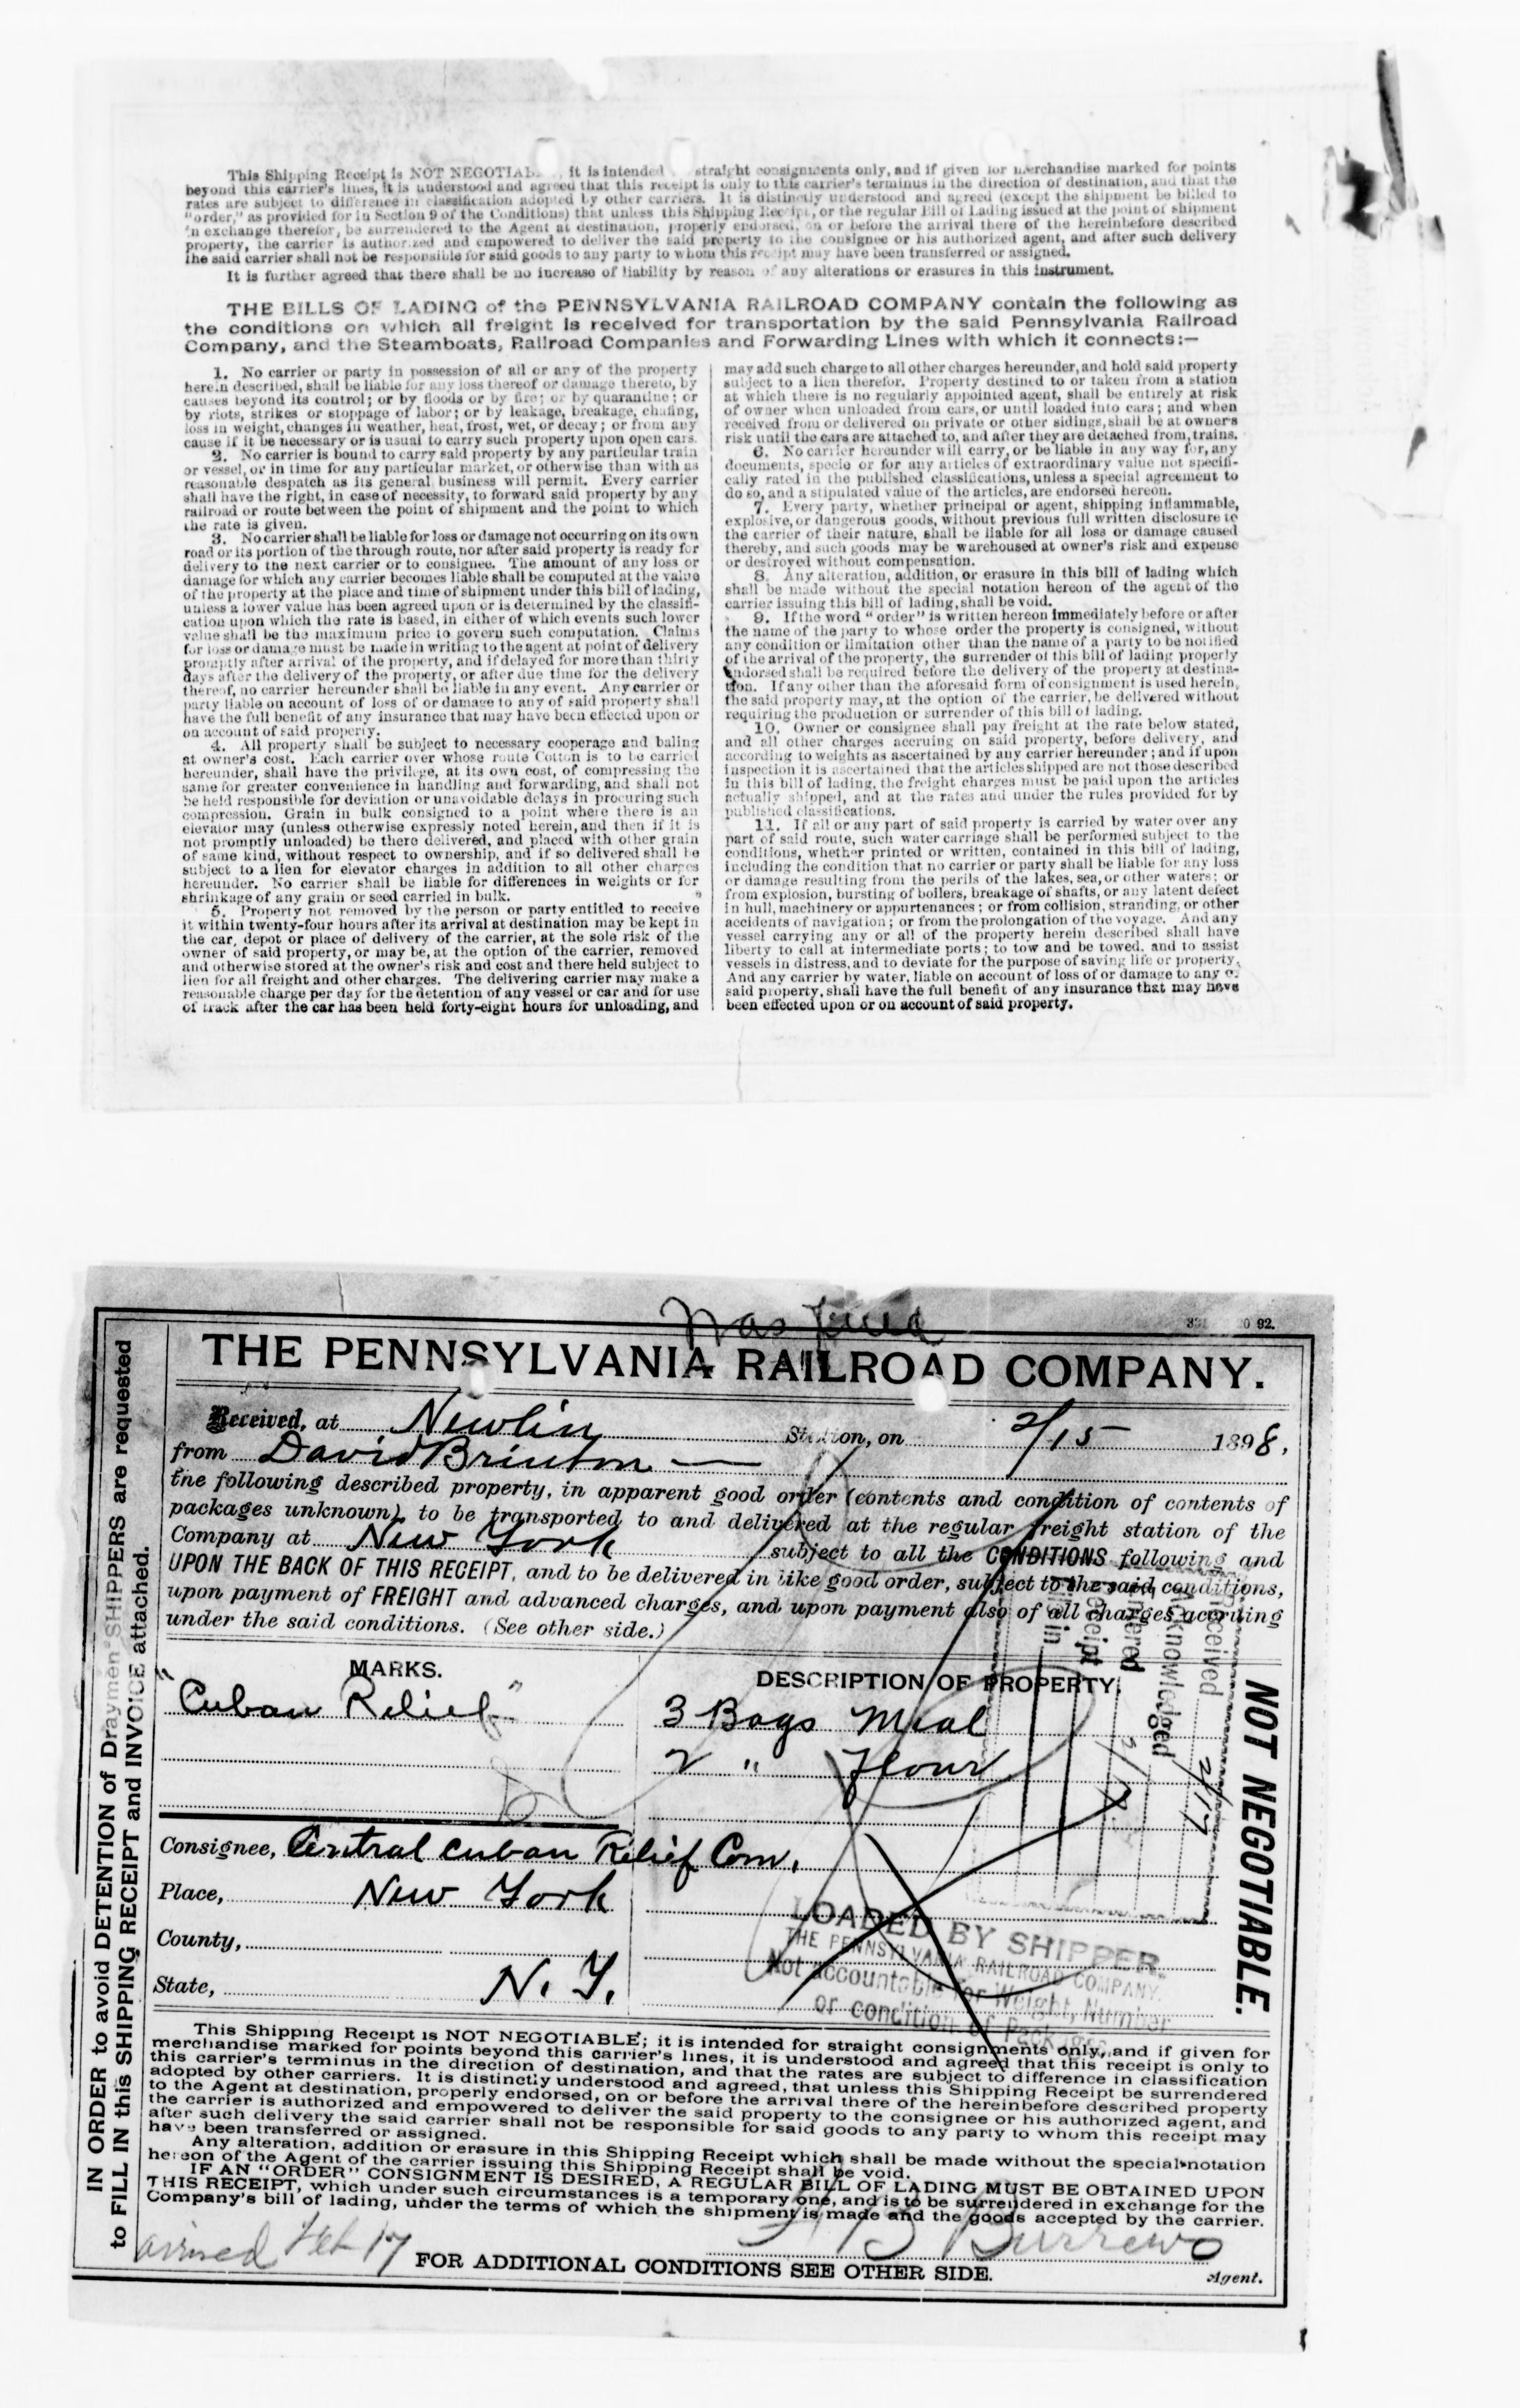 This Shipping Receipt is NOT NEGOTIAB it is intended straight consignments only, and if given for merchandise marked for points
beyond this carrier's lines, it is understood and agreed that this receipt is only to this carrier's terminus in the direction of destination, and that the
rates are subject to difference in classification adopted by other carriers. It is distinctly understood and agreed (except the shipment be billed to
"order," as provided for in Section 9 of the Conditions) that unless this Shipping Receipt, or the regular Bill of Lading issued at the point of shipment
in exchange therefor, be surrendered to the Agent at destination, properly endorsed, on or before the arrival there of the hereinbefore described
property, the carrier is authorized and empowered to deliver the said property to the consignee or his authorized agent, and after such delivery
the said carrier shall not be responsible for said goods to any party to whom this receipt may have been transferred or assigned.
It is further agreed that there shall be no increase of liability by reason of any alterations or erasures in this instrument.
THE BILLS OF LADING of the PENNSYLVANIA RAILROAD COMPANY contain the following as
the conditions on which all freight is received for transportation by the said Pennsylvania Railroad
Company, and the Steamboats, Railroad Companies and Forwarding Lines with which it connects:—
1. No carrier or party in possession of all or any of the property
herein described, shall be liable for any loss thereof or damage thereto, by
causes beyond its control; or by floods or by fire; or by quarantine; or
by riots, strikes or stoppage of labor; or by leakage, breakage, chafing,
loss in weight, changes in weather, heat, frost, wet, or decay; or from any
cause if it be necessary or is usual to carry such property upon open cars.
2. No carrier is bound to carry said property by any particular train
or vessel, or in time for any particular market, or otherwise than with as
reasonable despatch as its general business will permit. Every carrier
shall have the right, in case of necessity, to forward said property by any
railroad or route between the point of shipment and the point to which
the rate is given.
3. No carrier shall be liable for loss or damage not occurring on its own
road or its portion of the through route, nor after said property is ready for
delivery to the next carrier or to consignee. The amount of any loss or
damage for which any carrier becomes liable shall be computed at the value
of the property at the place and time of shipment under this bill of lading,
unless a lower value has been agreed upon or is determined by the classifi-
cation upon which the rate is based, in either of which events such lower
value shall be the maximum price to govern such computation. Claims
for loss or damage must be made in writing to the agent at point of delivery
promptly after arrival of the property, and if delayed for more than thirty
days after the delivery of the property, or after due time for the delivery
thereof, no carrier hereunder shall be liable in any event. Any carrier or
party liable on account of loss of or damage to any of said property shall
have the full benefit of any insurance that may have been effected upon or
on account of said property.
4. All property shall be subject to necessary cooperage and baling
at owner's cost. Each carrier over whose route Cotton is to be carried
hereunder, shall have the privilege, at its own cost, of compressing the
same for greater convenience in handling and forwarding, and shall not
be held responsible for deviation or unavoidable delays in procuring such
compression. Grain in bulk consigned to a point where there is an
elevator may (unless otherwise expressly noted herein, and then if it is
not promptly unloaded) be there delivered, and placed with other grain
of same kind, without respect to ownership, and if so delivered shall be
subject to a lien for elevator charges in addition to all other charges
hereunder. No carrier shall be liable for differences in weights or for
shrinkage of any grain or seed carried in bulk.
5. Property not removed by the person or party entitled to receive
it within twenty-four hours after its arrival at destination may be kept in
the car, depot or place of delivery of the carrier, at the sole risk of the
owner of said property, or may be, at the option of the carrier, removed
and otherwise stored at the owner's risk and cost and there held subject to
lien for all freight and other charges. The delivering carrier may make a
reasonable charge per day for the detention of any vessel or car and for use
of track after the car has been held forty-eight hours for unloading, and
may add such charge to all other charges hereunder, and hold said property
subject to a lien therefor. Property destined to or taken from a station
at which there is no regularly appointed agent, shall be entirely at risk
of owner when unloaded from cars, or until loaded into cars; and when
received from or delivered on private or other sidings, shall be at owner's
risk until the cars are attached to, and after they are detached from, trains.
6. No carrier hereunder will carry, or be liable in any way for, any
documents, specie or for any articles of extraordinary value not specifi-
cally rated in the published classifications, unless a special agreement to
do so, and a stipulated value of the articles, are endorsed hereon.
7. Every party, whether principal or agent, shipping inflammable,
explosive, or dangerous goods, without previous full written disclosure to
the carrier of their nature, shall be liable for all loss or damage caused
thereby, and such goods may be warehoused at owner's risk and expense
or destroyed without compensation.
8. Any alteration, addition, or erasure in this bill of lading which
shall be made without the special notation hereon of the agent of the
carrier issuing this bill of lading, shall be void.
9. If the word "order" is written hereon immediately before or after
the name of the party to whose order the property is consigned, without
any condition or limitation other than the name of a party to be notified
of the arrival of the property, the surrender of this bill of lading properly
endorsed shall be required before the delivery of the property at destina-
tion. If any other than the aforesaid form of consignment is used herein,
the said property may, at the option of the carrier, be delivered without
requiring the production or surrender of this bill of lading.
10. Owner or consignee shall pay freight at the rate below stated,
and all other charges accruing on said property, before delivery, and
according to weights as ascertained by any carrier hereunder; and if upon
inspection it is ascertained that the articles shipped are not those described
in this bill of lading, the freight charges must be paid upon the articles
actually shipped, and at the rates and under the rules provided for by
published classifications.
11. If all or any part of said property is carried by water over any
part of said route, such water carriage shall be performed subject to the
conditions, whether printed or written, contained in this bill of lading,
including the condition that no carrier or party shall be liable for any loss
or damage resulting from the perils of the lakes, sea, or other waters; or
from explosion, bursting of boilers, breakage of shafts, or any latent defect
in hull, machinery or appurtenances; or from collision, stranding, or other
accidents of navigation; or from the prolongation of the voyage. And any
vessel carrying any or all of the property herein described shall have
liberty to call at intermediate ports; to tow and be towed, and to assist
vessels in distress, and to deviate for the purpose of saving life or property.
And any carrier by water, liable on account of loss of or damage to any of
said property, shall have the full benefit of any insurance that may have
been effected upon or on account of said property.
Was
92.
THE PENNSYLVANIA RAILROAD COMPANY.
Received, at Newlin Station, on 2/15 1898,
from David Brinton —
the following described property, in apparent good order (contents and condition of contents of
packages unknown), to be transported to and delivered at the regular freight station of the
Company at New York subject to all the CONDITIONS following and
UPON THE BACK OF THIS RECEIPT, and to be delivered in like good order, subject to the said conditions,
upon payment of FREIGHT and advanced charges, and upon payment also of all charges accruing
under the said conditions. (See other side.)
MARKS. DESCRIPTION OF PROPERTY.
"Cuban Relief" 3 Bags Meal
2 " Flour
Consignee, Central Cuban Relief Com.
Place, New York
County,
State, N. Y.
Received 2/17
Acknowledged
LOADED BY SHIPPER.
THE PENNSYLVANIA RAILROAD COMPANY.
Not accountable for Weight, Number
or condition of Packages.
NOT NEGOTIABLE.
IN ORDER to avoid DETENTION of Draymen SHIPPERS are requested
to FILL IN this SHIPPING RECEIPT and INVOICE attached.
This Shipping Receipt is NOT NEGOTIABLE; it is intended for straight consignments only, and if given for
merchandise marked for points beyond this carrier's lines, it is understood and agreed that this receipt is only to
this carrier's terminus in the direction of destination, and that the rates are subject to difference in classification
adopted by other carriers. It is distinctly understood and agreed, that unless this Shipping Receipt be surrendered
to the Agent at destination, properly endorsed, on or before the arrival there of the hereinbefore described property
the carrier is authorized and empowered to deliver the said property to the consignee or his authorized agent, and
after such delivery the said carrier shall not be responsible for said goods to any party to whom this receipt may
have been transferred or assigned.
Any alteration, addition or erasure in this Shipping Receipt which shall be made without the special notation
hereon of the Agent of the carrier issuing this Shipping Receipt shall be void.
IF AN "ORDER" CONSIGNMENT IS DESIRED, A REGULAR BILL OF LADING MUST BE OBTAINED UPON
THIS RECEIPT, which under such circumstances is a temporary one, and is to be surrendered in exchange for the
Company's bill of lading, under the terms of which the shipment is made and the goods accepted by the carrier.
arrived Feb 17
FOR ADDITIONAL CONDITIONS SEE OTHER SIDE.
Agent.